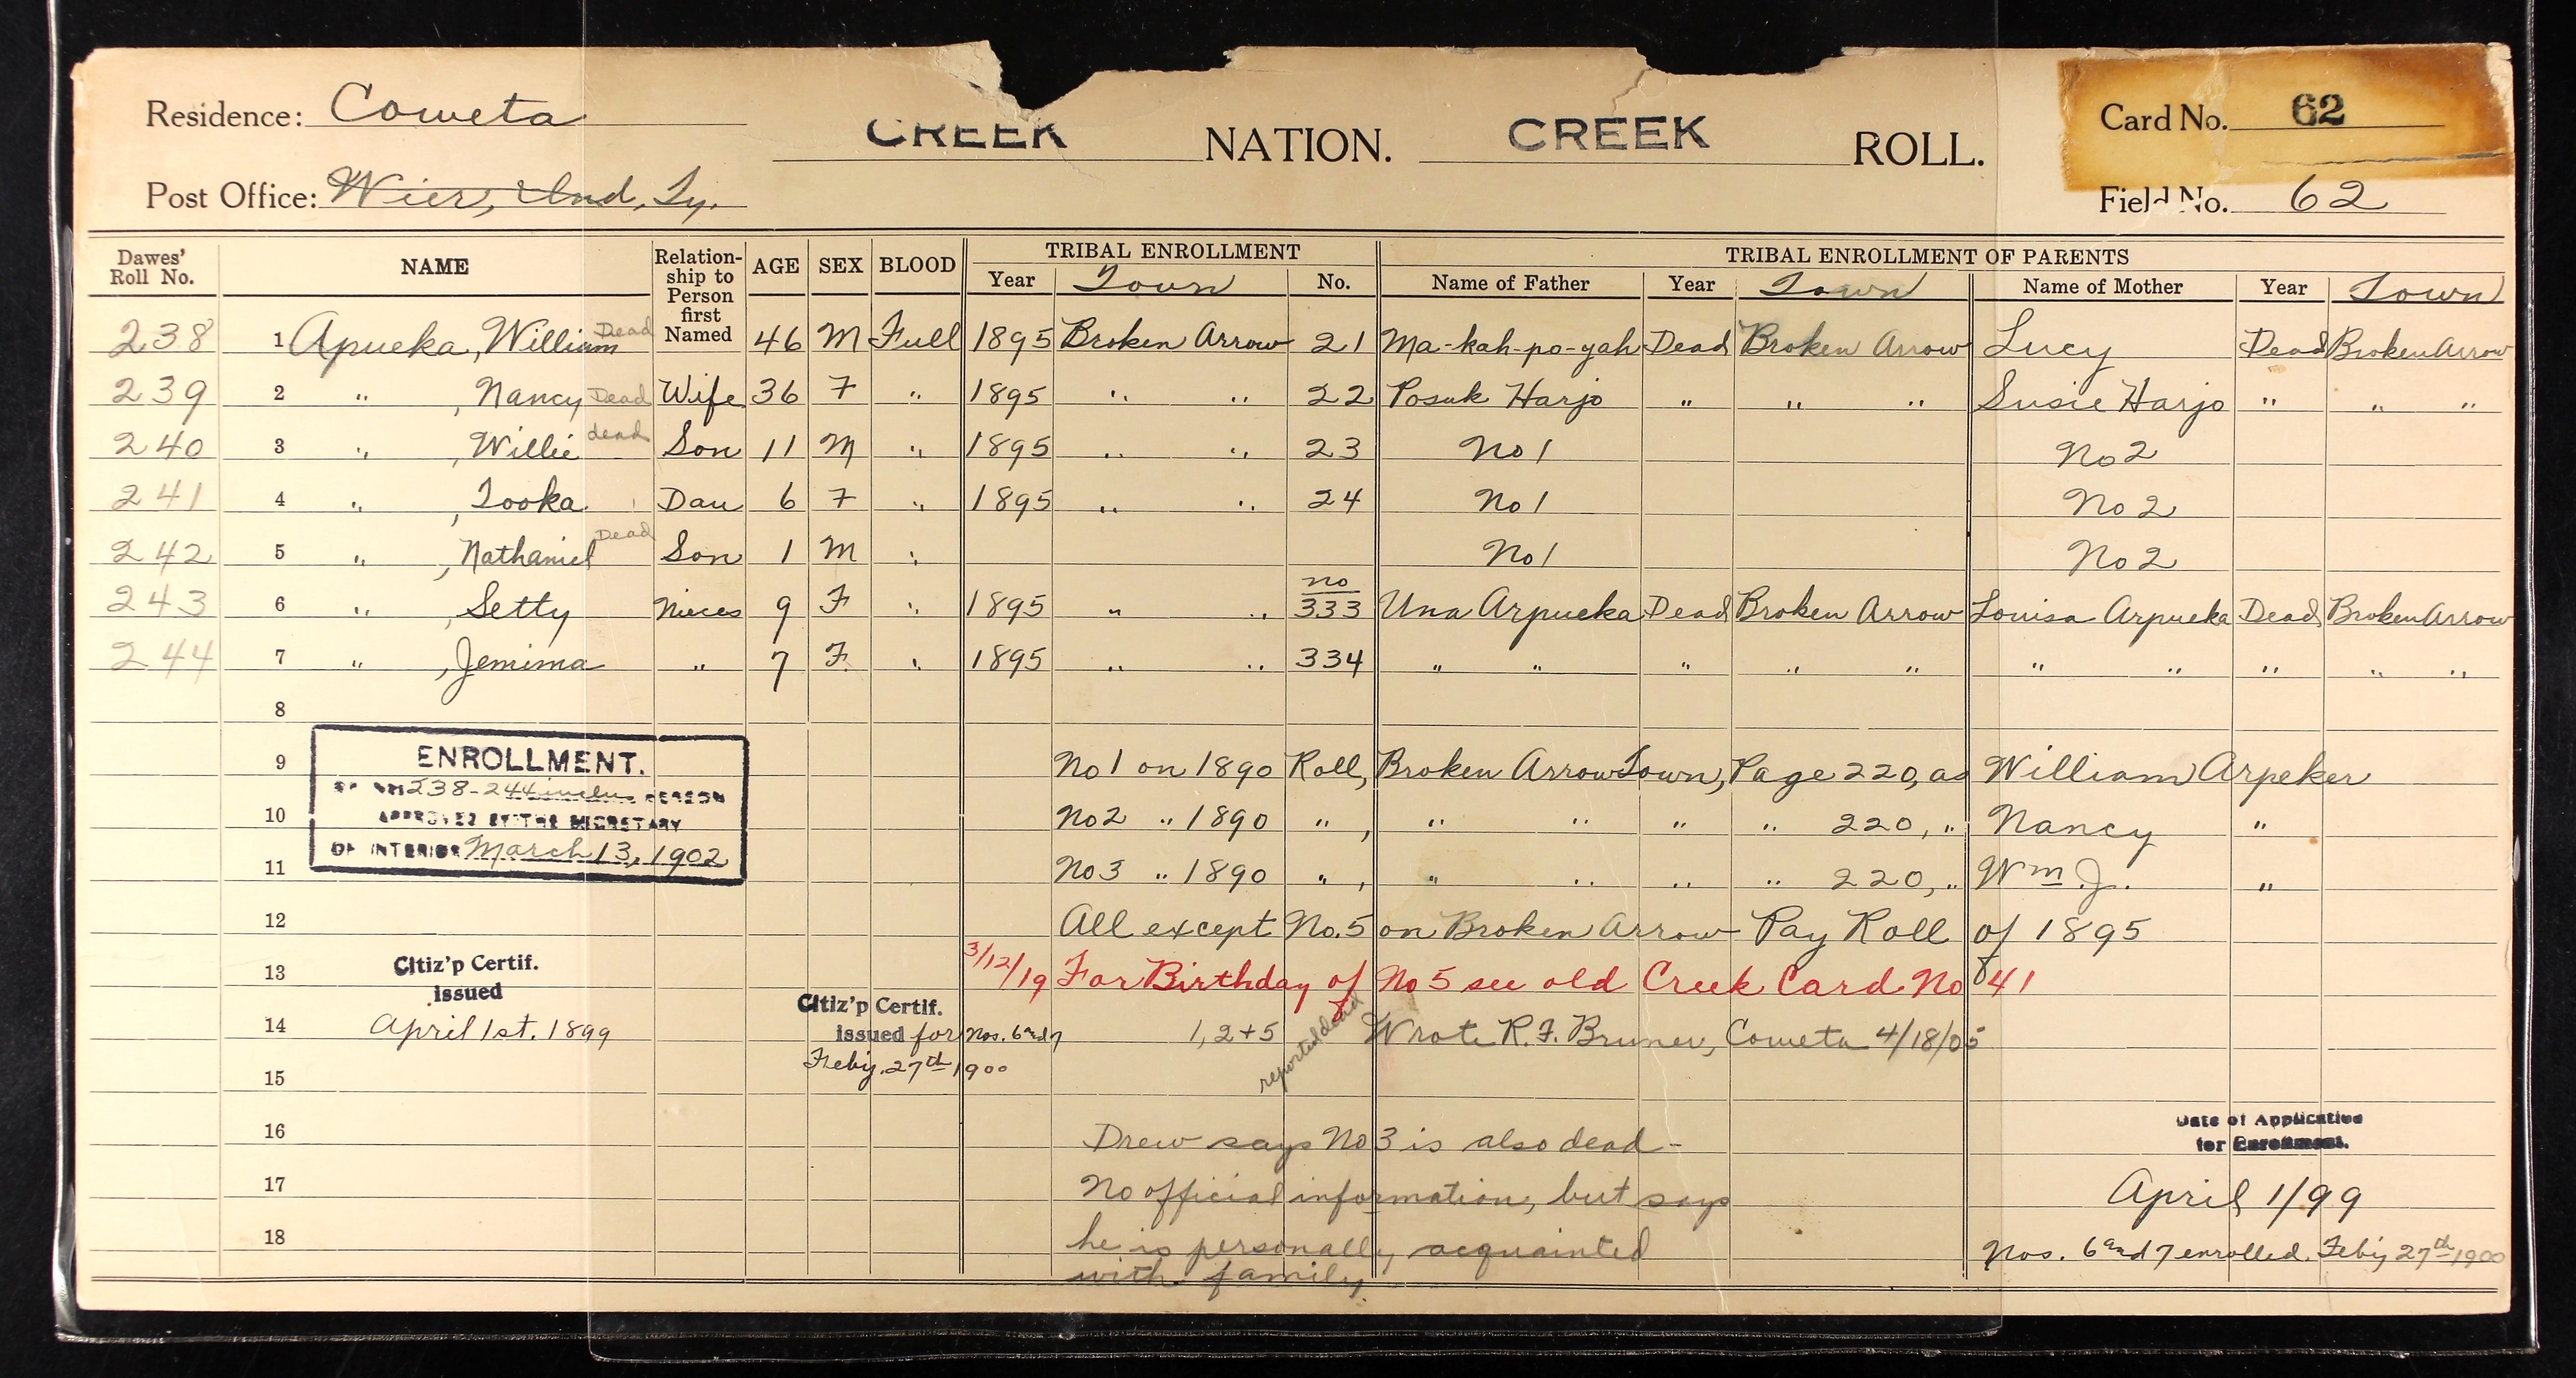 Residence: Coweta CREEK NATION. CREEK ROLL. Card No. 62
Post Office: Wier, Ind, Ty. Field No. 62
Dawes' Roll No. NAME Relationship to Person first Named AGE SEX BLOOD TRIBAL ENROLLMENT TRIBAL ENROLLMENT OF PARENTS
Year Town No. Name of Father Year Town Name of Mother Year Town
238 1 Apueka, William Dead 46 M Full 1895 Broken Arrow 21 Ma-kah-po-yah Dead Broken Arrow Lucy Dead Broken Arrow
239 2 " , Nancy Dead Wife 36 F " 1895 " " 22 Posuk Harjo " " " Susie Harjo " " "
240 3 " , Willie dead Son 11 M " 1895 " " 23 No 1 No 2
241 4 " , Tooka Dau 6 F " 1895 " " 24 No 1 No 2
242 5 " , Nathaniel Dead Son 1 M " No 1 No 2
243 6 " , Setty Nieces 9 F " 1895 " " no 333 Una Arpueka Dead Broken Arrow Louisa Arpueka Dead Broken Arrow
244 7 " , Jemima " 7 F. " 1895 " " 334 " " " " " " " " " "
8
ENROLLMENT.
OF NOS 238-244 inclus PERSON
APPROVED BY THE SECRETARY
OF INTERIOR March 13, 1902
9 No 1 on 1890 Roll, Broken Arrow Town, Page 220, as William Arpeker
10 No 2 " 1890 " , " " " " 220, " Nancy "
11 No 3 " 1890 " , " " " " 220, " Wm. J. "
12 All except No. 5 on Broken Arrow Pay Roll of 1895
13 3/12/19 For Birthday of No 5 see old Creek Card No 841
Citiz'p Certif.
issued
14 April 1st. 1899
Citiz'p Certif.
issued for Nos. 6 and 7
Feb'y. 27th 1900
1, 2 + 5 reported dead Wrote R. F. Bruner, Coweta 4/18/05
15
16 Drew says No 3 is also dead -
17 No official information, but says
18 he is personally acquainted
with family.
Date of Application
for Enrollment.
April 1/99
Nos. 6 and 7 enrolled. Feb'y 27th 1900